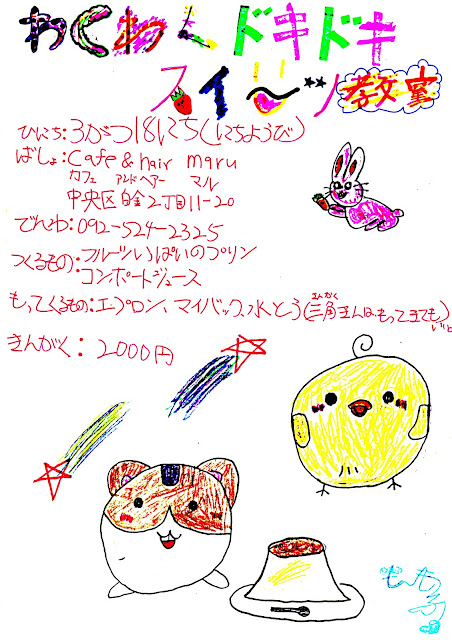 わくわくドキドキ
スイーツ教室
ひにち:3がつ18にち(にちようび)
ばしょ:Cafe & hair maru
カフェ アンドヘアー マル
中央区白金2丁目11-20
でんわ:092-524-2325
つくるもの:フルーツいっぱいのプリン
コンポートジュース
もってくるもの:エプロン、マイバック、水とう(三角きんは、もってきても)
さんかく
いい
きんがく:2000円